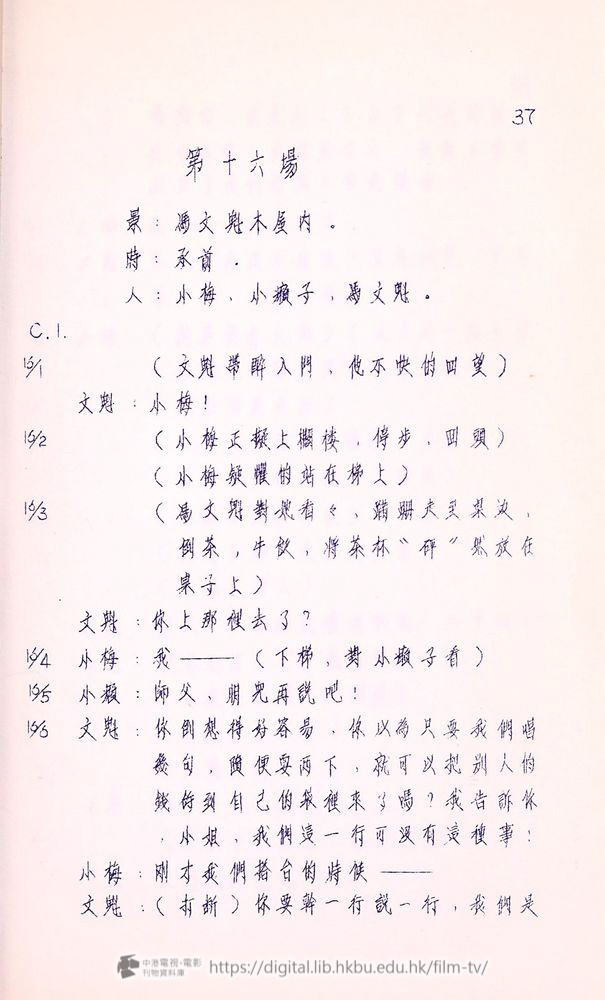 37
第十六場
景：馮文魁木屋內。
時：承前．
人：小梅、小癩子、馮文魁。
C.1.
16/1 （文魁帶醉入門、他不快的回望）
文魁：小梅！
16/2 （小梅正擬上擱楼，停步，回頭）
（小梅疑懼的站在梯上）
16/3 （馮文魁對她看々、蹣跚走至桌边，
倒茶，牛飲，將茶杯〝砰〞然放在
桌子上）
文魁：你上那裡去了？
16/4 小梅：我——（下梯，對小癩子看）
16/5 小癩：師父、明兒再說吧！
16/6 文魁：你倒想得好容易，你以為只要我們唱
幾句，隨便耍两下，就可以把別人的
錢侍到自己的袋裡來了嗎？我告訴你
，小姐，我們這一行可沒有這種事！
小梅：剛才我們搭台的時候——
文魁：（打断）你要幹一行說一行，我們是
中港電視·電影
刊物資料庫
https://digital.lib.hkbu.edu.hk/film-tv/